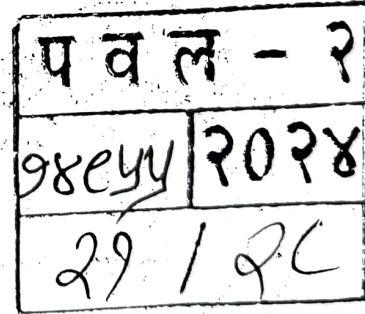 पवल - २
१४९५५ २०२४
२१ / २८